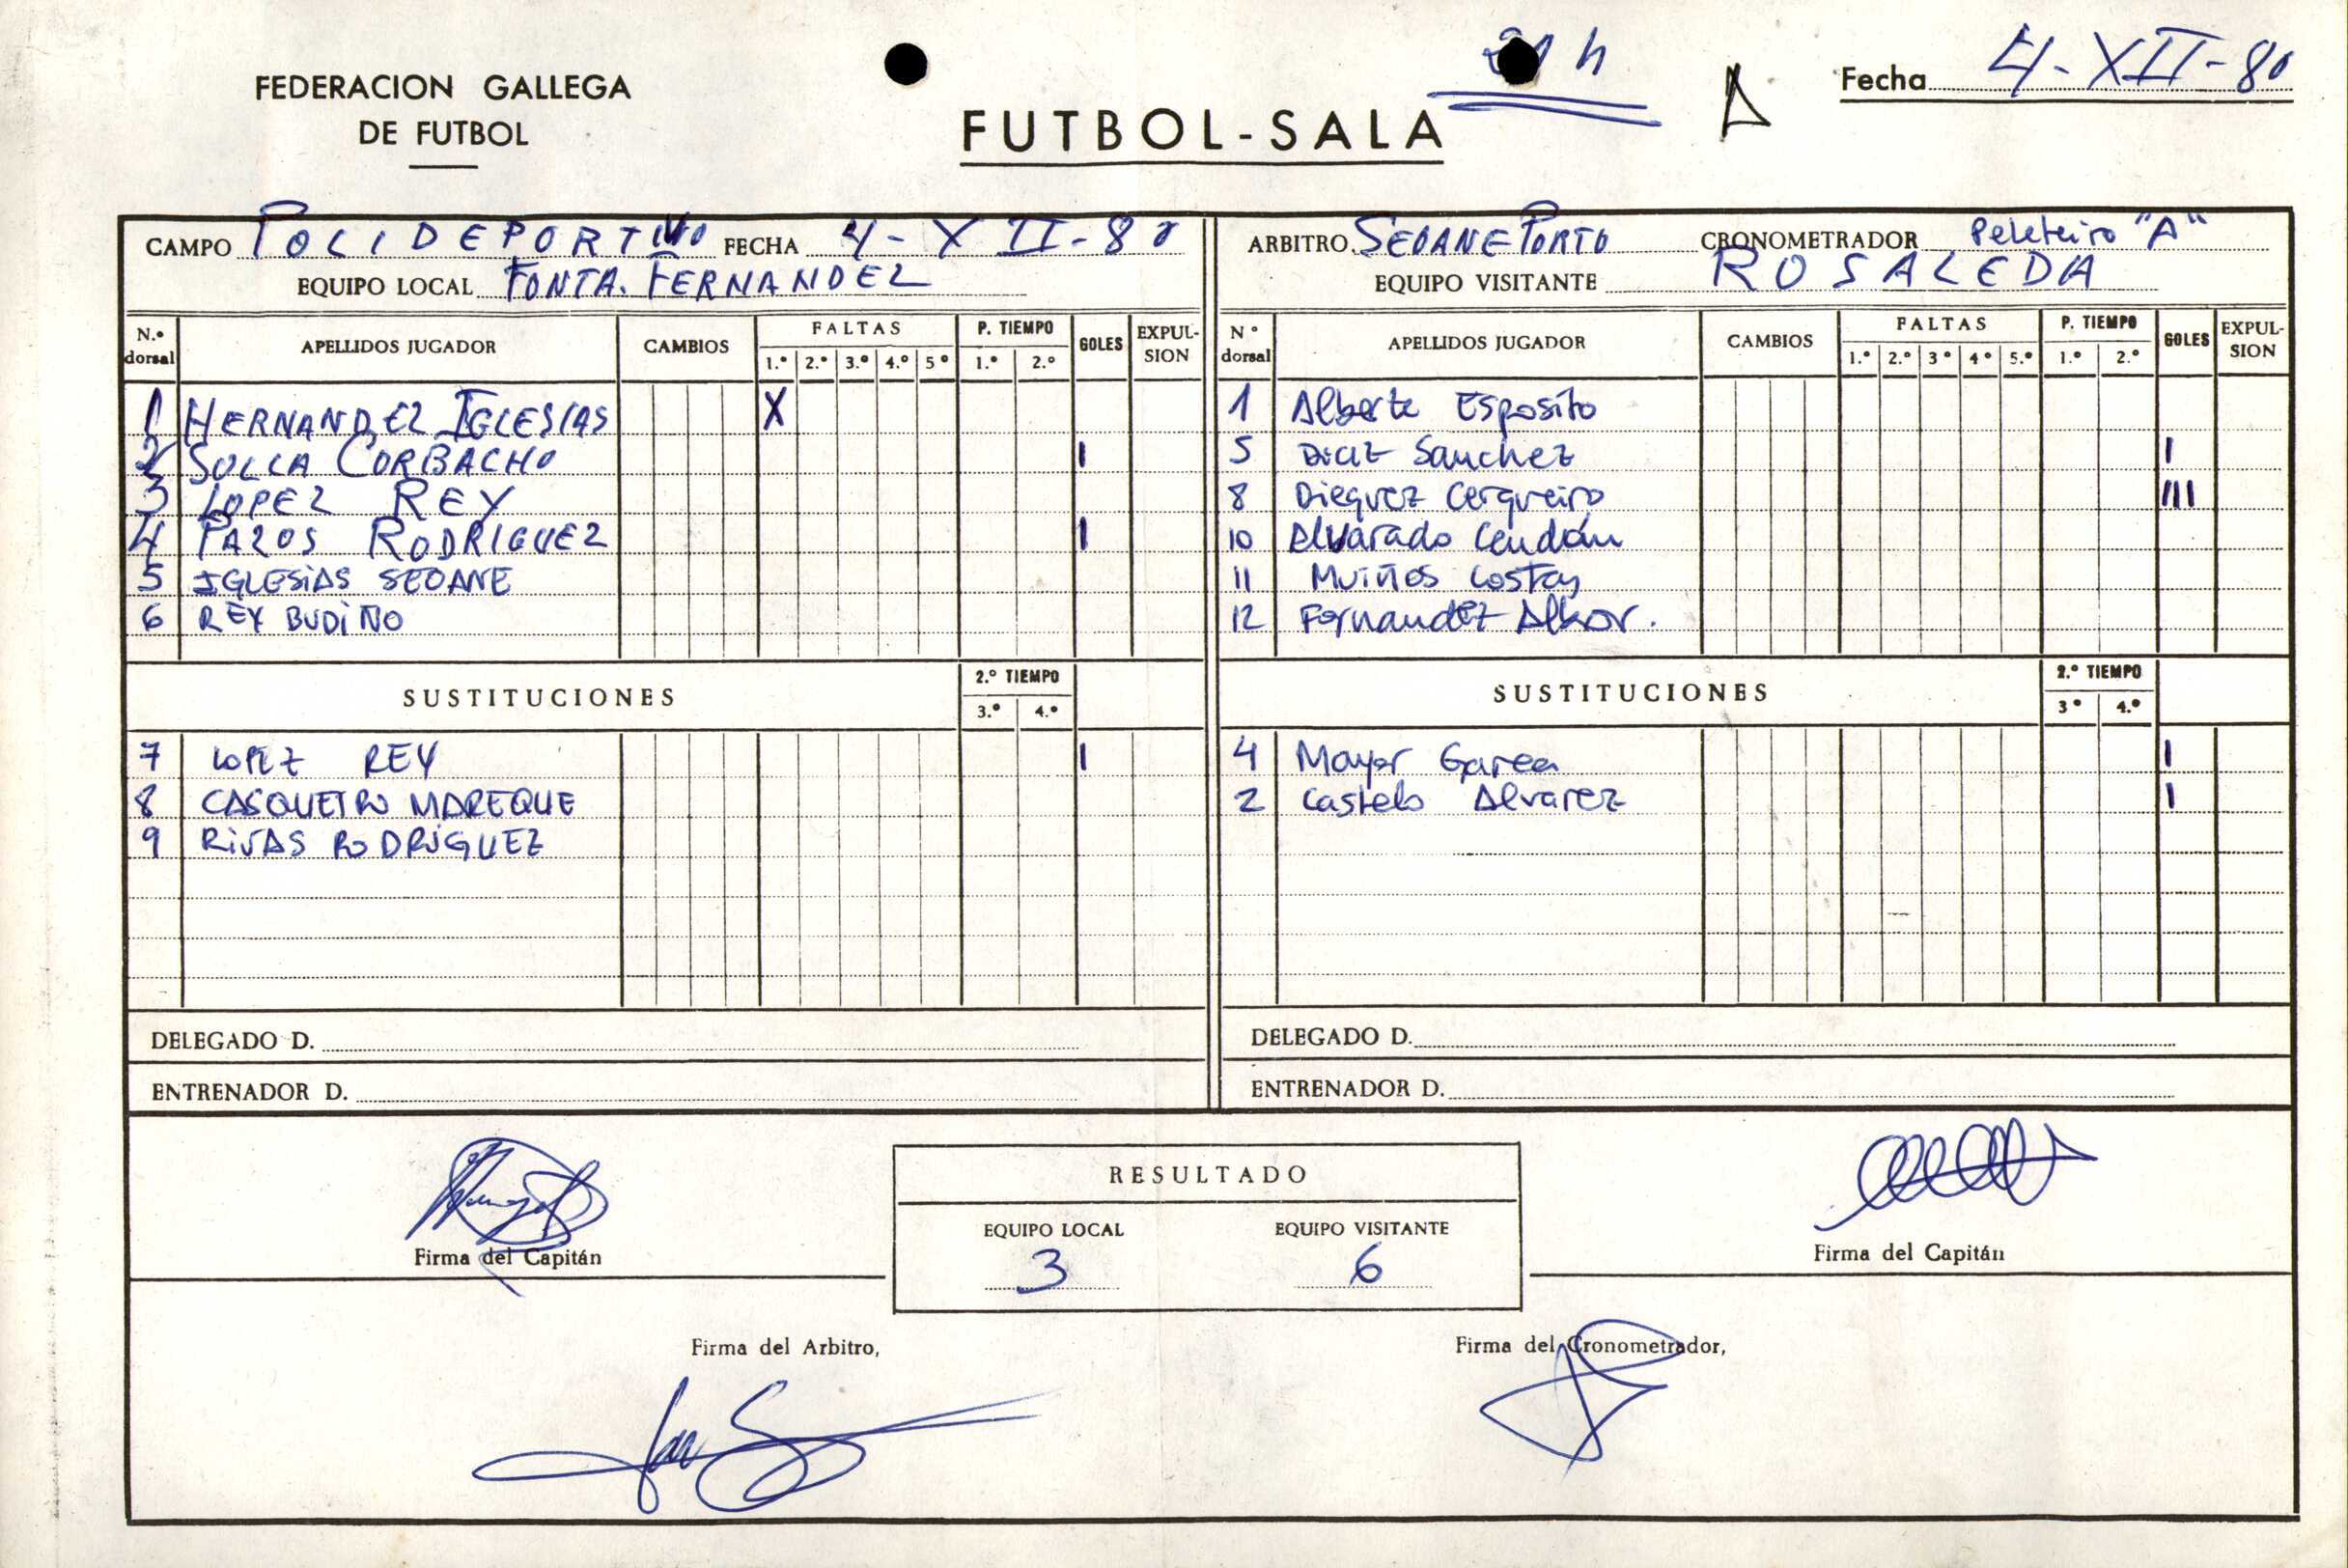 FEDERACION GALLEGA
DE FUTBOL
FUTBOL-SALA
h
A
Fecha 4-XII-80
CAMPO POLIDEPORTIVO FECHA 4-XII-80
EQUIPO LOCAL FONTA. FERNANDEZ
N.º dorsal APELLIDOS JUGADOR CAMBIOS FALTAS 1.º 2.º 3.º 4.º 5º P. TIEMPO 1.º 2.º GOLES EXPUL-SION
1 HERNANDEZ IGLESIAS X
2 SOLLA CORBACHO I
3 LOPEZ REY
4 PAZOS RODRIGUEZ I
5 IGLESIAS SEOANE
6 REY BUDIÑO
SUSTITUCIONES 2.º TIEMPO 3.º 4.º
7 LOPEZ REY I
8 CASQUEIRO MAREQUE
9 RIVAS RODRIGUEZ
DELEGADO D.
ENTRENADOR D.
ARBITRO SEOANE PORTO CRONOMETRADOR Peleteiro "A"
EQUIPO VISITANTE ROSALEDA
Nº dorsal APELLIDOS JUGADOR CAMBIOS FALTAS 1.º 2.º 3º 4º 5.º P. TIEMPO 1.º 2.º GOLES EXPUL-SION
1 Alberte Esposito
5 Diaz Sanchez I
8 Dieguez Cerqueiro III
10 Alvarado Cendán
11 Muiños Costas
12 Fernandez
SUSTITUCIONES 2.º TIEMPO 3º 4.º
4 Mayor Garea I
2 Castelo Alvarez I
DELEGADO D.
ENTRENADOR D.
Firma del Capitán
RESULTADO
EQUIPO LOCAL EQUIPO VISITANTE
3 6
Firma del Capitán
Firma del Arbitro,
Firma del Cronometrador,